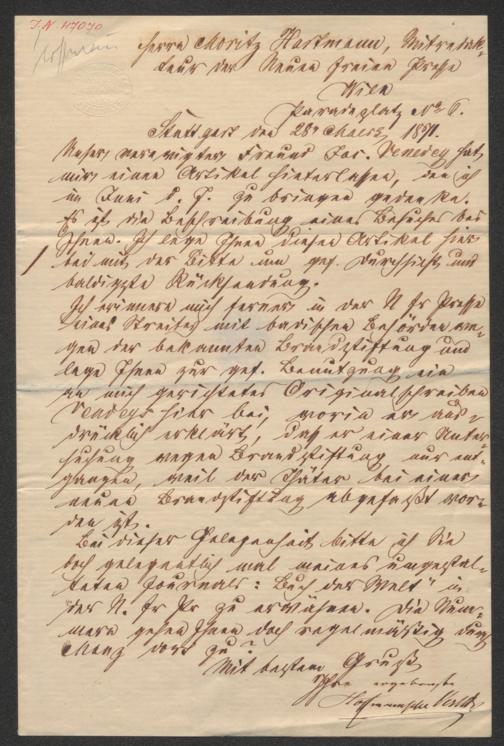 I.N. 47070
Herrn Moritz Hartmann, Mitredak-
teur der Neuen Freien Presse
Wien
Paradeplatz No 6.
Stuttgart den 28 März 1871.
Unser verewigter Freund Jac. Venedey hat
mir einen Artikel hinterlassen, den ich
im Juni d. J. zu bringen gedenke.
Es ist die Beschreibung eines Besuches bei
Ihnen. Ich lege Ihnen diesen Artikel hier
bei mit der Bitte um gef. Durchsicht und
baldigste Rücksendung.
Ich erinnere mich ferner in der N fr Presse
eines Streites mit badischen Behörden we-
gen der bekannten Brandstiftung und
lege Ihnen zur gef. Benutzung ein
an mich gerichtetes Originalschreiben
Venedeys hier bei, worin er aus-
drücklich erklärt, daß er einer Unter-
suchung wegen Brandstiftung nur ent-
gangen, weil der Thäter bei einer
neuen Brandstiftung abgefaßt wor-
den ist.
Bei dieser Gelegenheit bitte ich Sie
doch gelegentlich mal meines umgestal-
teten Journals: Buch der Welt" in
der N. fr Pr zu erwähnen. Die Num-
mern gehen Ihnen doch regelmäßig durch
dort zu?
Mit bestem Gruß
Ihre ergebenste